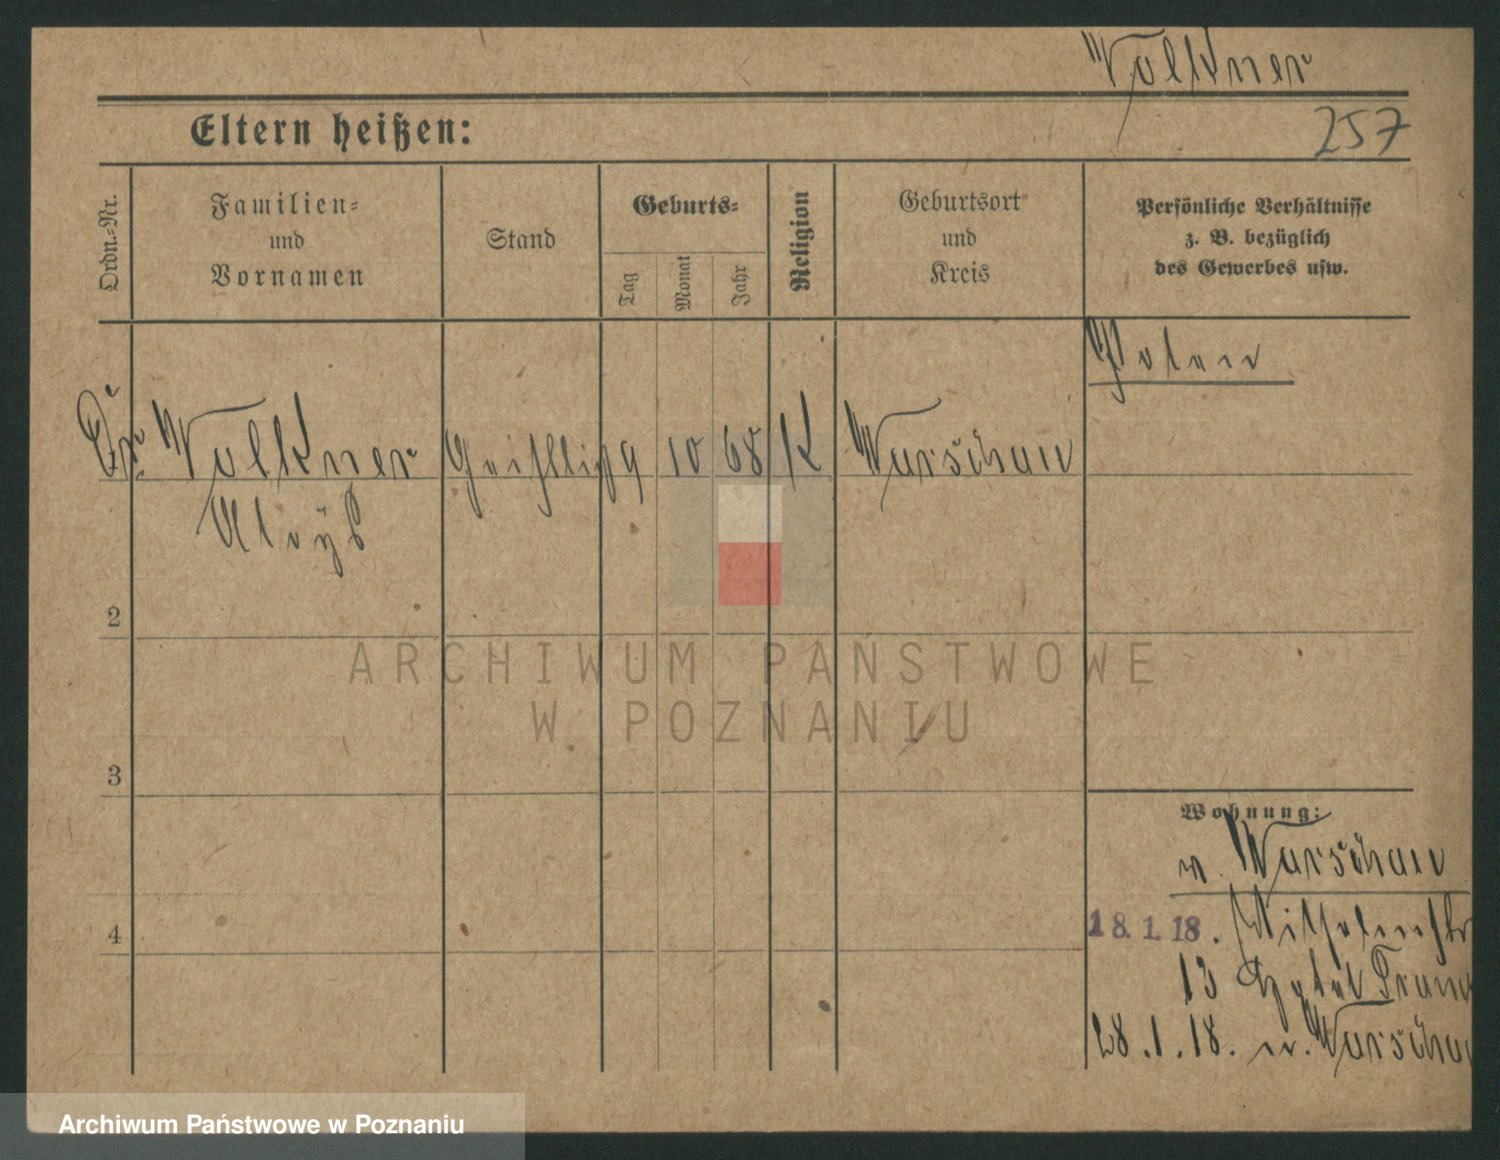 Volkner
257
Eltern heißen:
Ordn.-Nr.
Familien-
und
Vornamen
Stand
Geburts-
Tag
Monat
Jahr
Religion
Geburtsort
und
Kreis
Persönliche Verhältnisse
z. B. bezüglich
des Gewerbes usw.
Polen
Dr. Volkner 9 10 68 K Warschau
Aloÿs
2
ARCHIWUM PAŃSTWOWE
W POZNANIU
3
Wohnung:
n. Warschau
4
18.1.18. Wilhelmstr
13 Hotel
28.1.18. n. Warschau
Archiwum Państwowe w Poznaniu